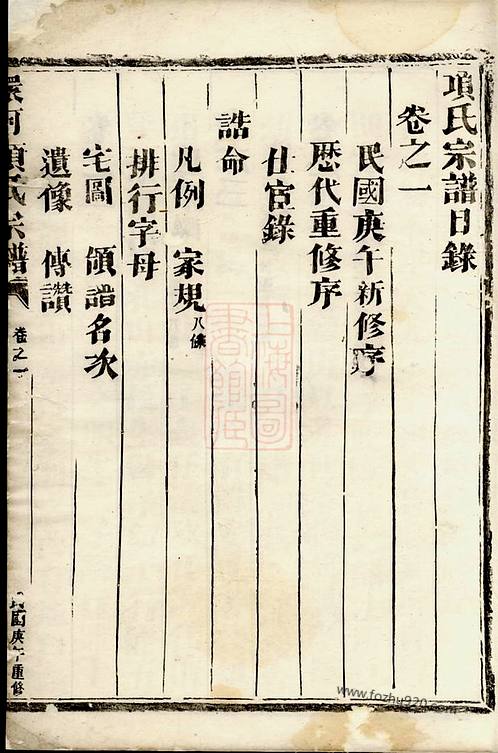 項氏宗譜目錄
卷之一
民國庚午新修序
歷代重修序
仕宦錄
誥命
凡例 家規八條
排行字母
宅圖 領譜名次
遺像 傳讚
河項氏宗譜
卷之一
民國庚午重修
上海圖書館藏
www.fozhu920